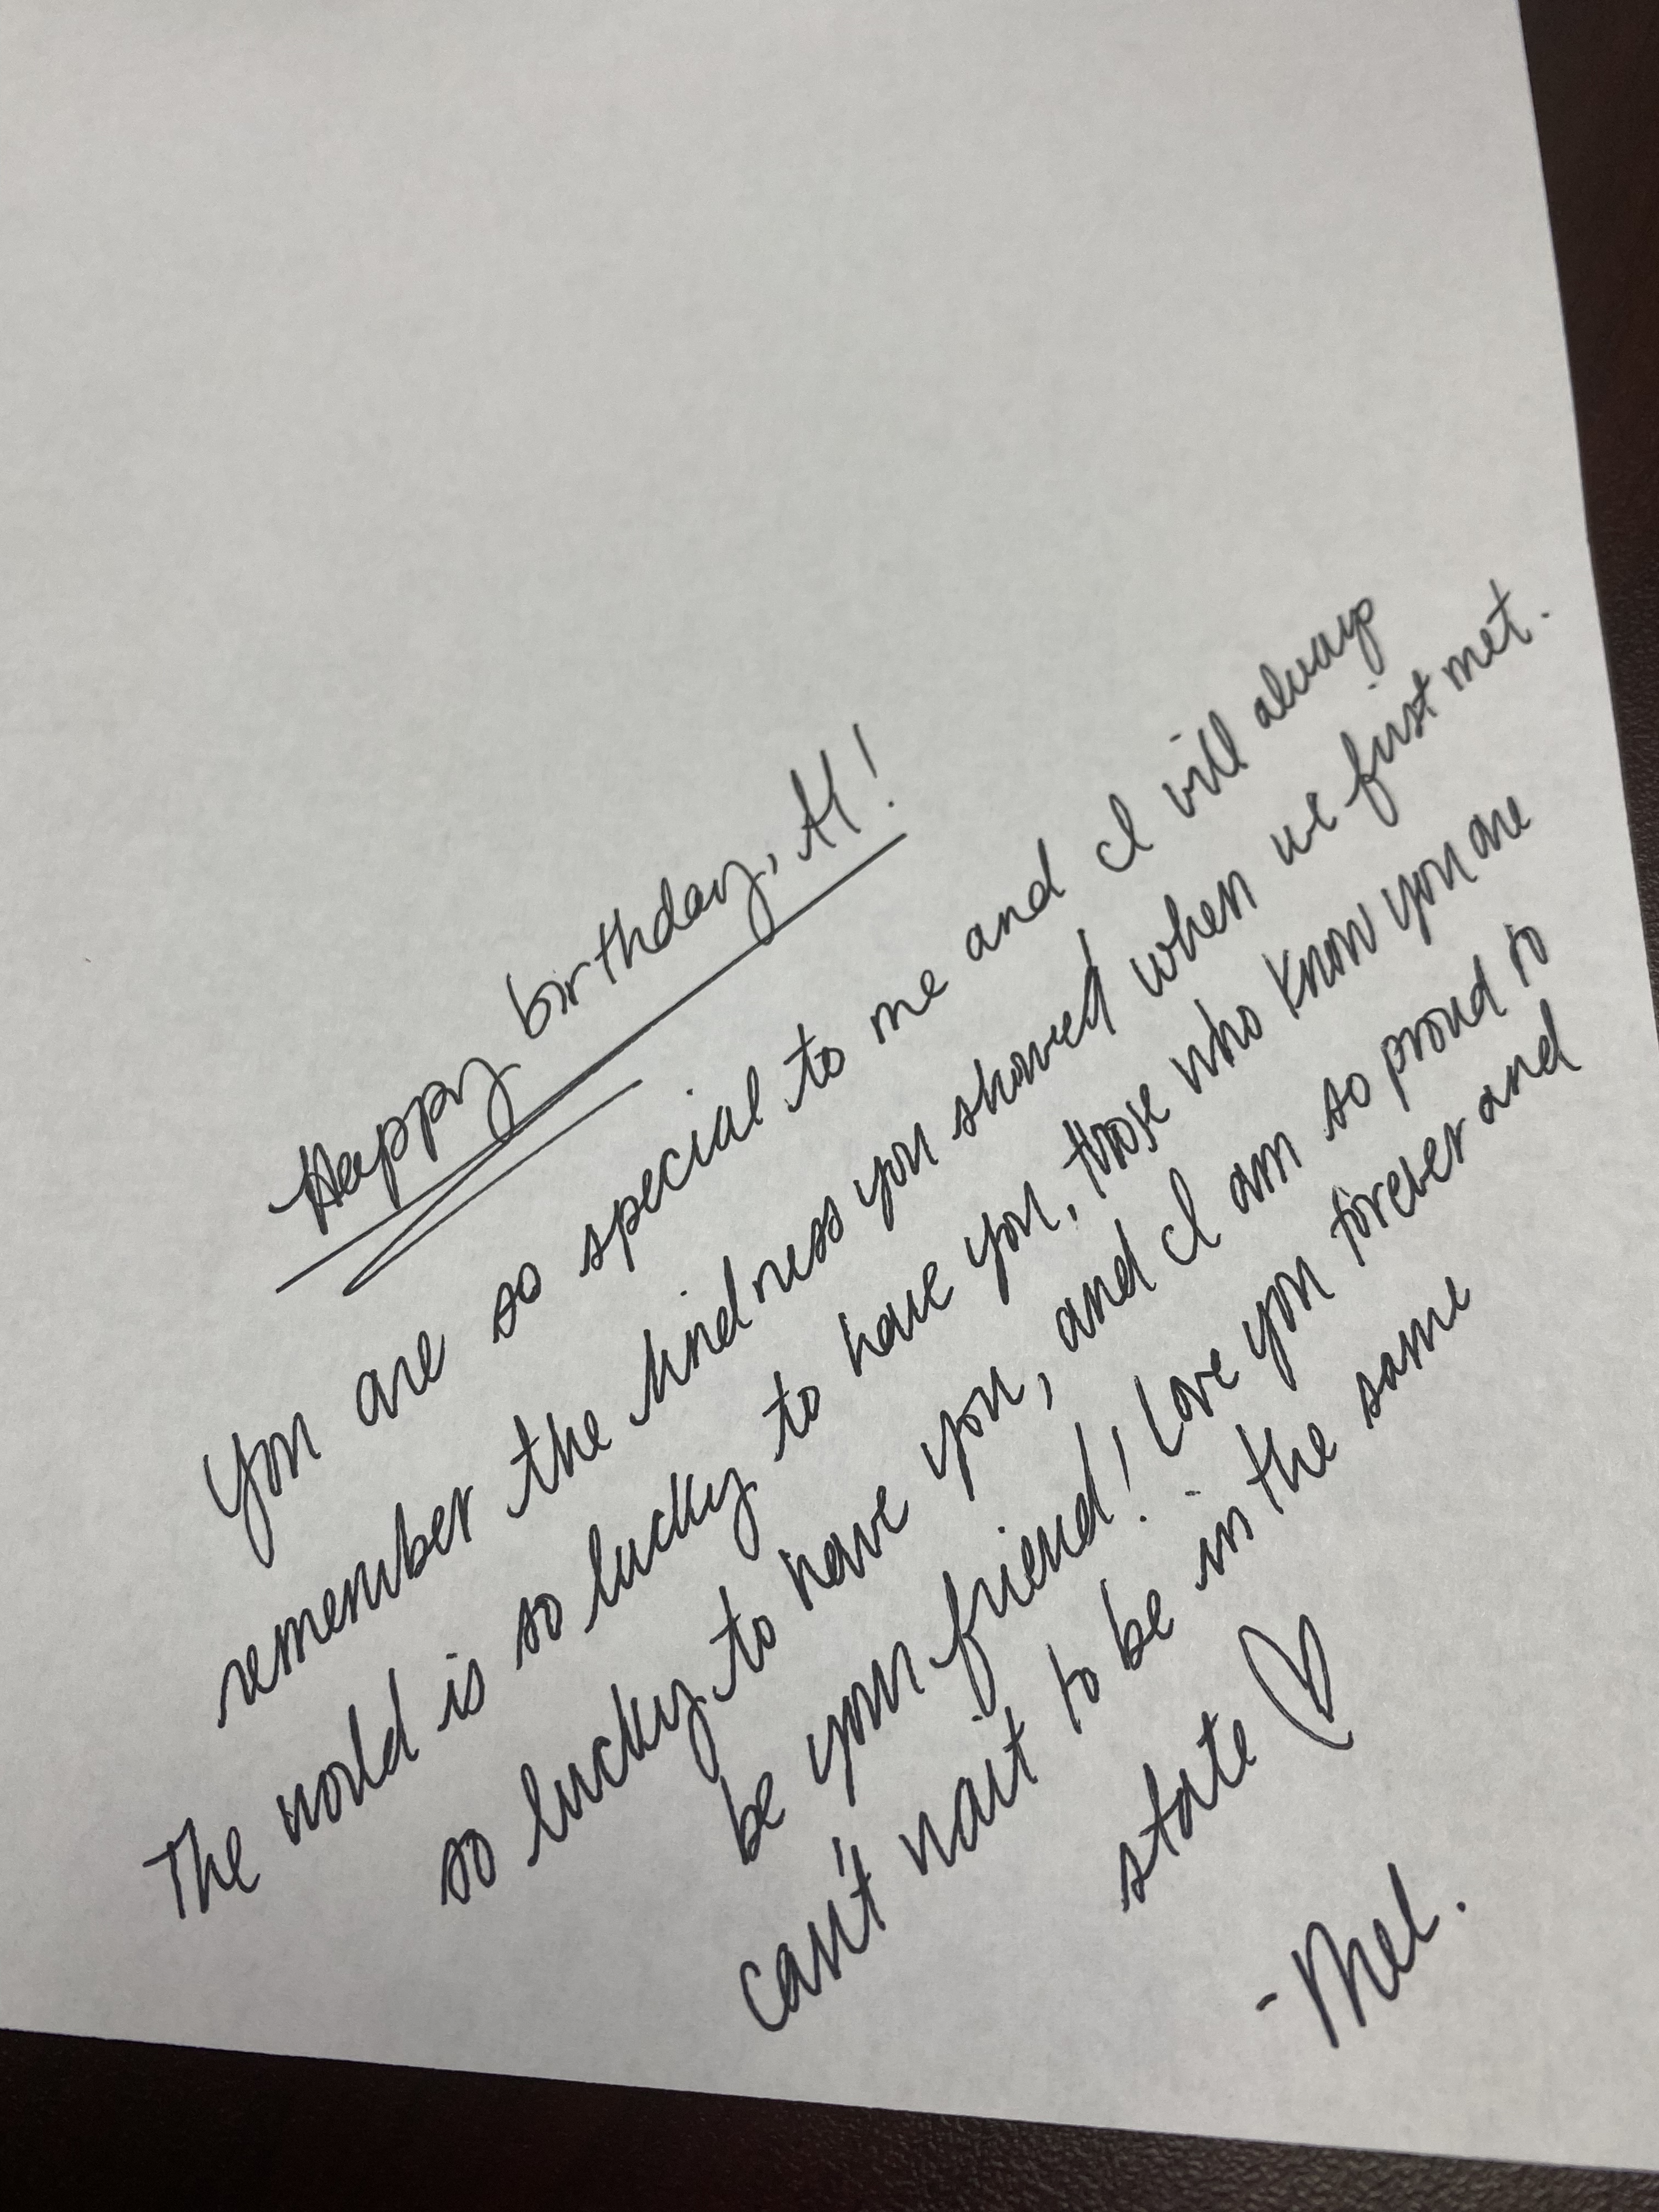 Happy birthday, Al!
You are so special to me and I will always
remember the kindness you showed when we first met.
The world is so lucky to have you, those who know you are
so lucky to have you, and I am so proud to
be your friend! Love you forever and
can't wait to be in the same
state ♡
- Mel.